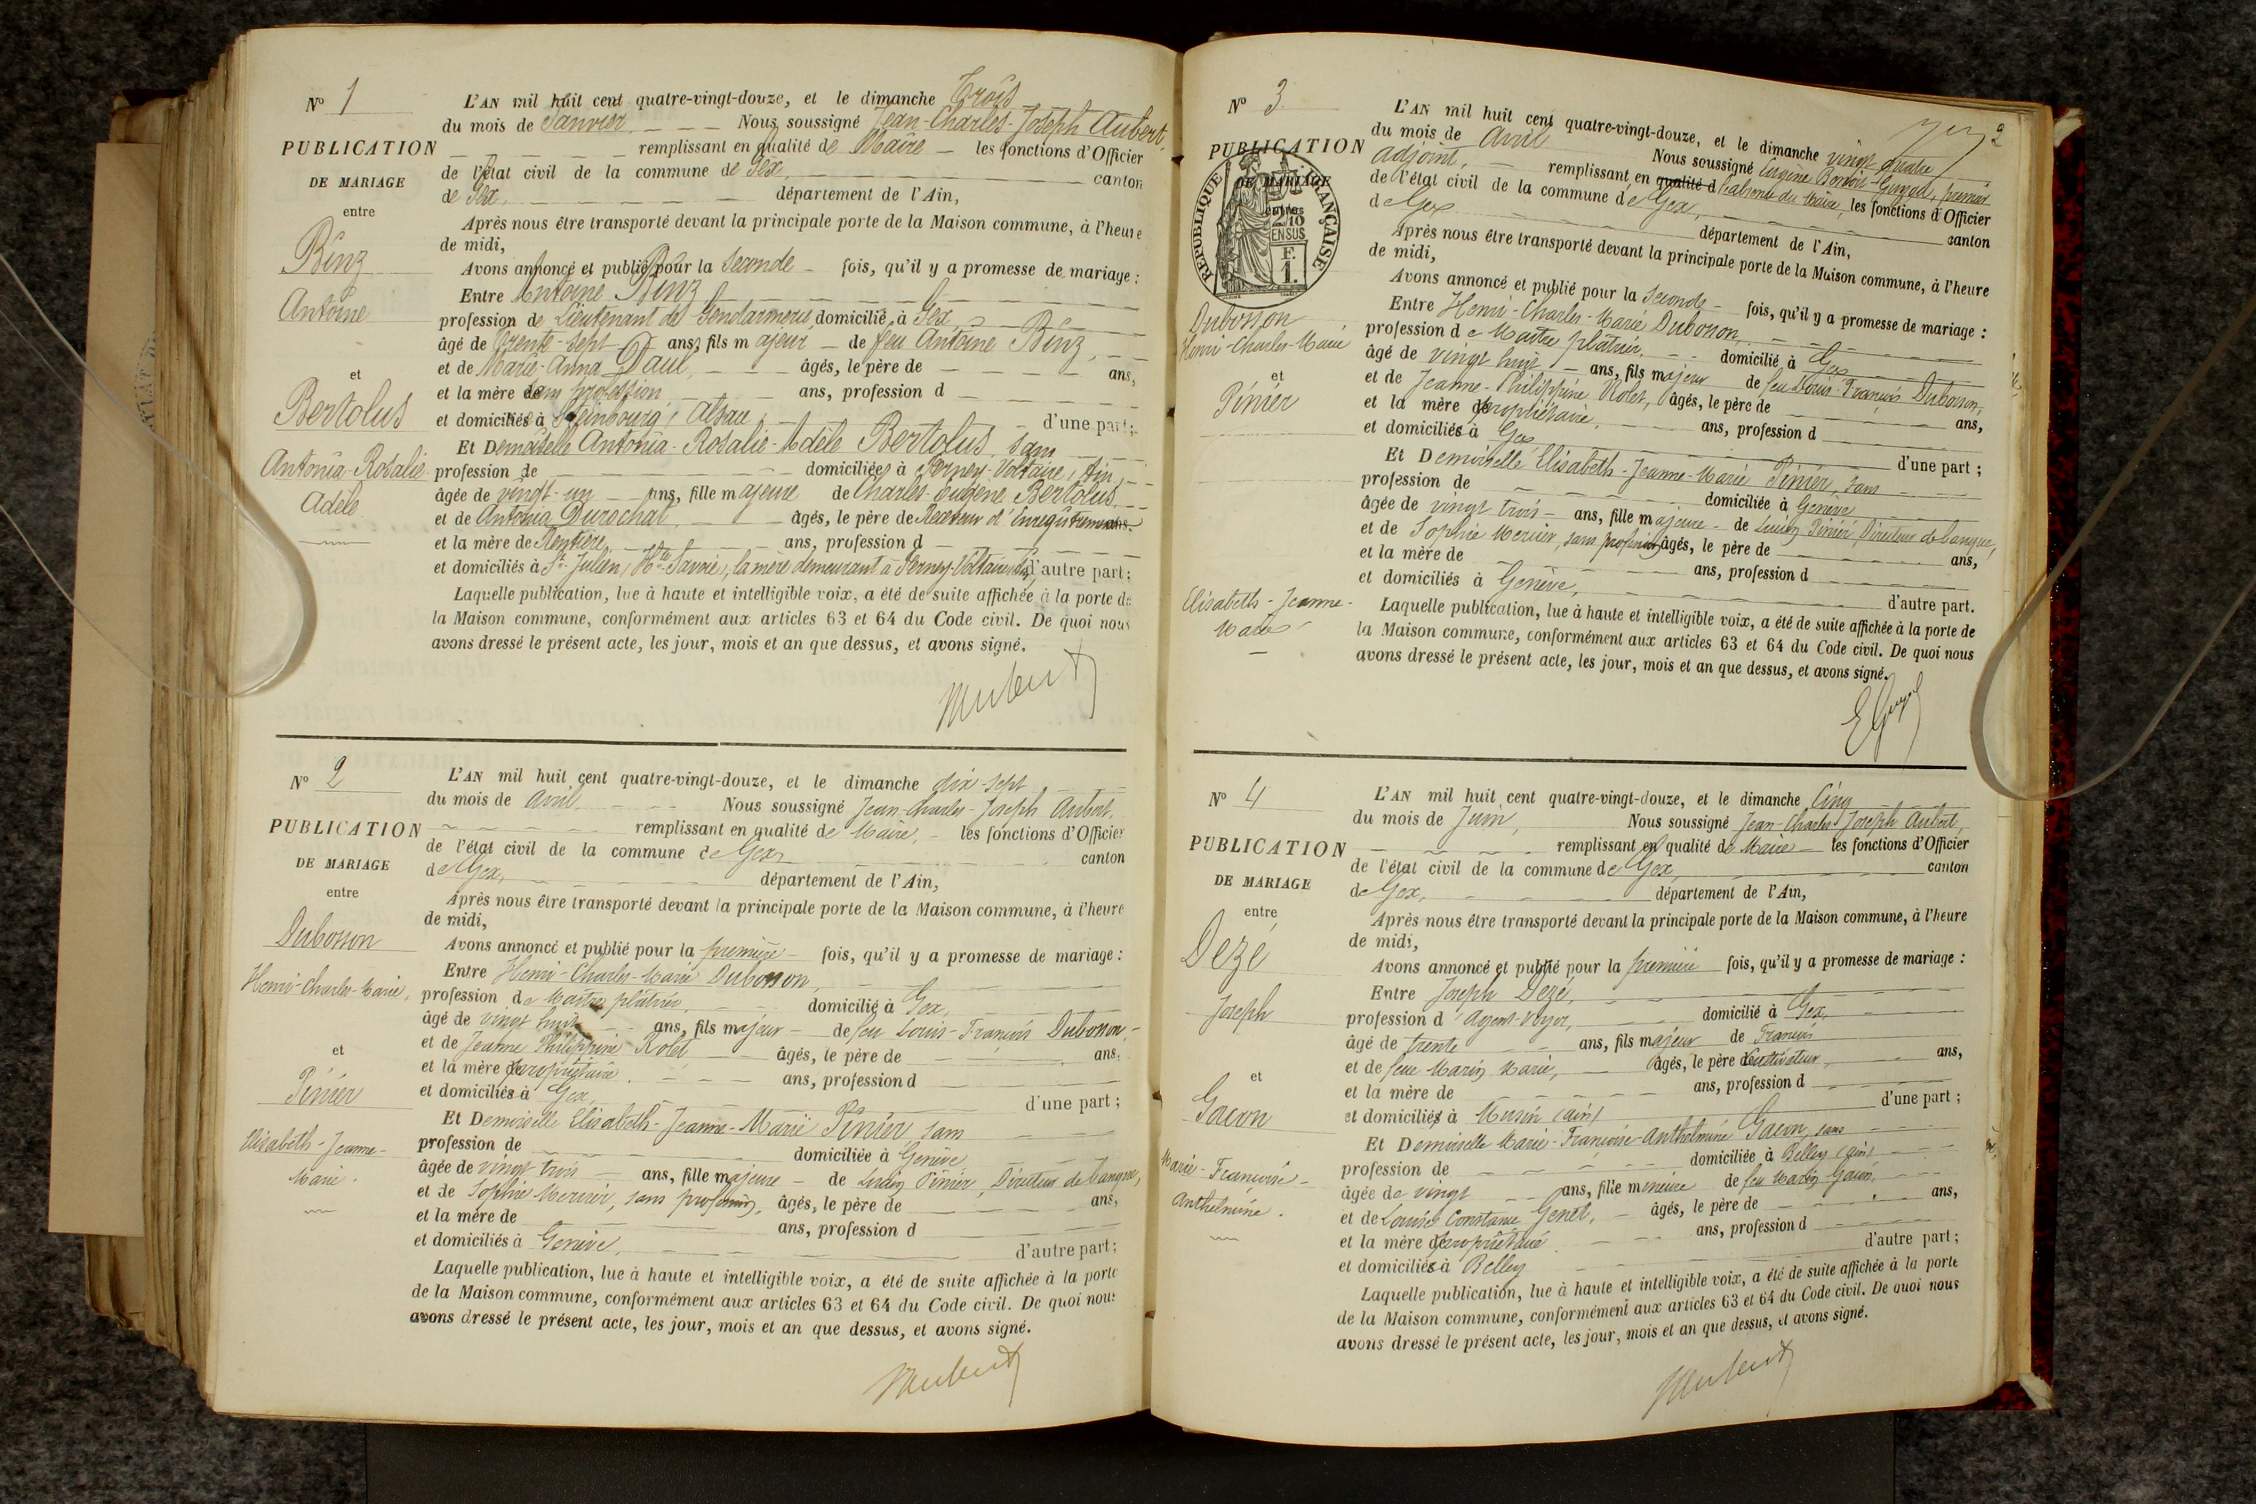 N° 1
PUBLICATION
DE MARIAGE
entre
Binz
Antoine
et
Bertolus
Antonia-Rosalie
Adèle
L'AN mil huit cent quatre-vingt-douze, et le dimanche Trois
du mois de Janvier Nous soussigné Jean-Charles-Joseph Aubert,
remplissant en qualité de Maire les fonctions d'Officier
de l'état civil de la commune de Gex, canton
de Gex, département de l'Ain,
Après nous être transporté devant la principale porte de la Maison commune, à l'heure
de midi,
Avons annoncé et publié pour la seconde fois, qu'il y a promesse de mariage :
Entre Antoine Binz
profession de Lieutenant de Gendarmerie, domicilié à Gex
âgé de trente-sept ans, fils majeur de feu Antoine Binz,
et de Marie-Anna Daul, âgés, le père de ans,
et la mère de sans profession ans, profession d
et domiciliés à Steinbourg, Alsace, d'une part ;
Et Demoiselle Antonia-Rosalie-Adèle Bertolus, sans
profession de domiciliée à Ferney-Voltaire, Ain,
âgée de vingt-un ans, fille majeure de Charles Eugène Bertolus,
et de Antonia Durochat, âgés, le père de Receveur d'Enregistrement ans.
et la mère de Rentière, ans, profession d
et domiciliés à St Julien, Hte Savoie, la mère demeurant à Ferney-Voltaire d'autre part ;
Laquelle publication, lue à haute et intelligible voix, a été de suite affichée à la porte de
la Maison commune, conformément aux articles 63 et 64 du Code civil. De quoi nous
avons dressé le présent acte, les jour, mois et an que dessus, et avons signé.
Aubert
N° 2
PUBLICATION
DE MARIAGE
entre
Dubosson
Henri-Charles-Marie,
et
Pinier
Elisabeth-Jeanne-
Marie.
L'AN mil huit cent quatre-vingt-douze, et le dimanche dix-sept
du mois de Avril Nous soussigné Jean-Charles-Joseph Aubert,
remplissant en qualité de Maire, les fonctions d'Officier
de l'état civil de la commune de Gex, canton
de Gex, département de l'Ain,
Après nous être transporté devant la principale porte de la Maison commune, à l'heure
de midi,
Avons annoncé et publié pour la première fois, qu'il y a promesse de mariage :
Entre Henri-Charles-Marie Dubosson,
profession de Maître plâtrier, domicilié à Gex,
âgé de vingt huit ans, fils majeur de feu Louis-François Dubosson,
et de Jeanne Philippine Rolet âgés, le père de ans,
et la mère de propriétaire. ans, profession d
et domiciliés à Gex, d'une part ;
Et Demoiselle Elisabeth-Jeanne-Marie Pinier, sans
profession de domiciliée à Genève
âgée de vingt trois ans, fille majeure de Lucien Pinier, Directeur de banque,
et de Sophie Mercier, sans profession, âgés, le père de ans,
et la mère de ans, profession d
et domiciliés à Genève, d'autre part ;
Laquelle publication, lue à haute et intelligible voix, a été de suite affichée à la porte
de la Maison commune, conformément aux articles 63 et 64 du Code civil. De quoi nous
avons dressé le présent acte, les jour, mois et an que dessus, et avons signé.
Aubert
2
N° 3
PUBLICATION
DE MARIAGE
entre
REPUBLIQUE FRANÇAISE
2/10 EN SUS
F. 1.
Dubosson
Henri-Charles-Marie
et
Pinier
Elisabeth-Jeanne-
Marie
L'AN mil huit cent quatre-vingt-douze, et le dimanche vingt quatre
du mois de Avril Nous soussigné Eugène Guyod, premier
adjoint, remplissant en qualité d l'absence du Maire, les fonctions d'Officier
de l'état civil de la commune de Gex, canton
de Gex département de l'Ain,
Après nous être transporté devant la principale porte de la Maison commune, à l'heure
de midi,
Avons annoncé et publié pour la seconde fois, qu'il y a promesse de mariage :
Entre Henri-Charles-Marie Dubosson,
profession de Maître plâtrier, domicilié à Gex
âgé de vingt huit ans, fils majeur de feu Louis-François Dubosson,
et de Jeanne-Philippine Rolet, âgés, le père de ans,
et la mère de propriétaire, ans, profession d
et domiciliés à Gex d'une part ;
Et Demoiselle Elisabeth-Jeanne-Marie Pinier, sans
profession de domiciliée à Genève
âgée de vingt trois ans, fille majeure de Lucien Pinier, Directeur de banque,
et de Sophie Mercier, sans profession âgés, le père de ans,
et la mère de ans, profession d
et domiciliés à Genève, d'autre part.
Laquelle publication, lue à haute et intelligible voix, a été de suite affichée à la porte de
la Maison commune, conformément aux articles 63 et 64 du Code civil. De quoi nous
avons dressé le présent acte, les jour, mois et an que dessus, et avons signé.
N° 4
PUBLICATION
DE MARIAGE
entre
Dezé
Joseph
et
Gacon
Marie-Françoise-
Anthelmine.
L'AN mil huit cent quatre-vingt-douze, et le dimanche Cinq
du mois de Juin, Nous soussigné Jean-Charles-Joseph Aubert,
remplissant en qualité de Maire les fonctions d'Officier
de l'état civil de la commune de Gex, canton
de Gex, département de l'Ain,
Après nous être transporté devant la principale porte de la Maison commune, à l'heure
de midi,
Avons annoncé et publié pour la première fois, qu'il y a promesse de mariage :
Entre Joseph Dezé,
profession d'Agent-Voyer, domicilié à Gex,
âgé de trente ans, fils majeur de François
et de feue Marin Marie, âgés, le père de Cultivateur, ans,
et la mère de ans, profession d
et domiciliés à (Ain) d'une part ;
Et Demoiselle Marie-Françoise-Anthelmine Gacon, sans
profession de domiciliée à Belley (Ain)
âgée de vingt ans, fille mineure de feu Marin Gacon,
et de Louise Constance Genet, âgés, le père de ans,
et la mère de propriétaire ans, profession d
et domiciliés à Belley d'autre part ;
Laquelle publication, lue à haute et intelligible voix, a été de suite affichée à la porte
de la Maison commune, conformément aux articles 63 et 64 du Code civil. De quoi nous
avons dressé le présent acte, les jour, mois et an que dessus, et avons signé.
Aubert